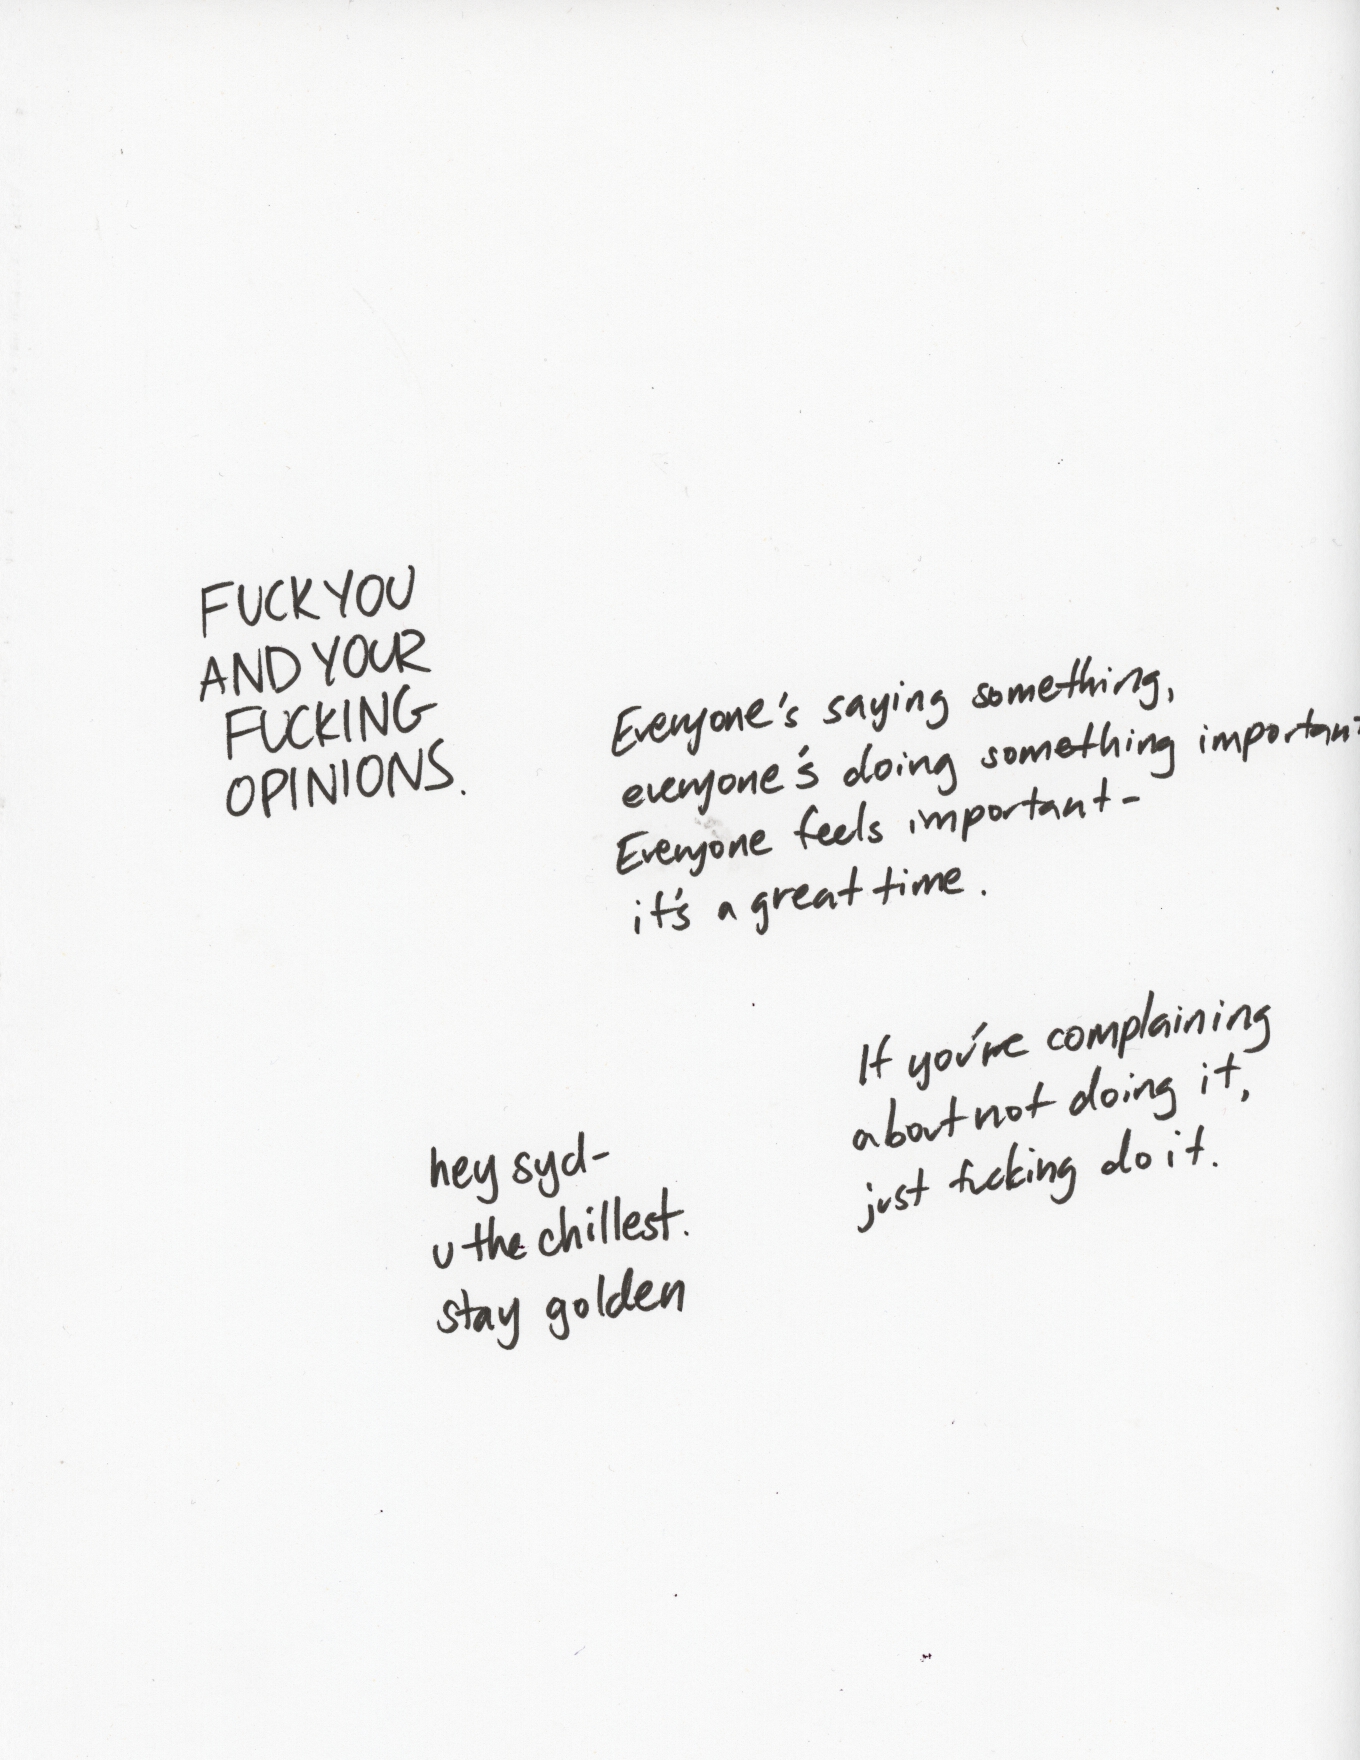 FUCK YOU
AND YOUR
FUCKING
OPINIONS.
Everyone's saying something,
everyone's doing something important
Everyone feels important-
it's a great time.
If you're complaining
about not doing it,
just fucking do it.
hey syd-
u the chillest.
stay golden